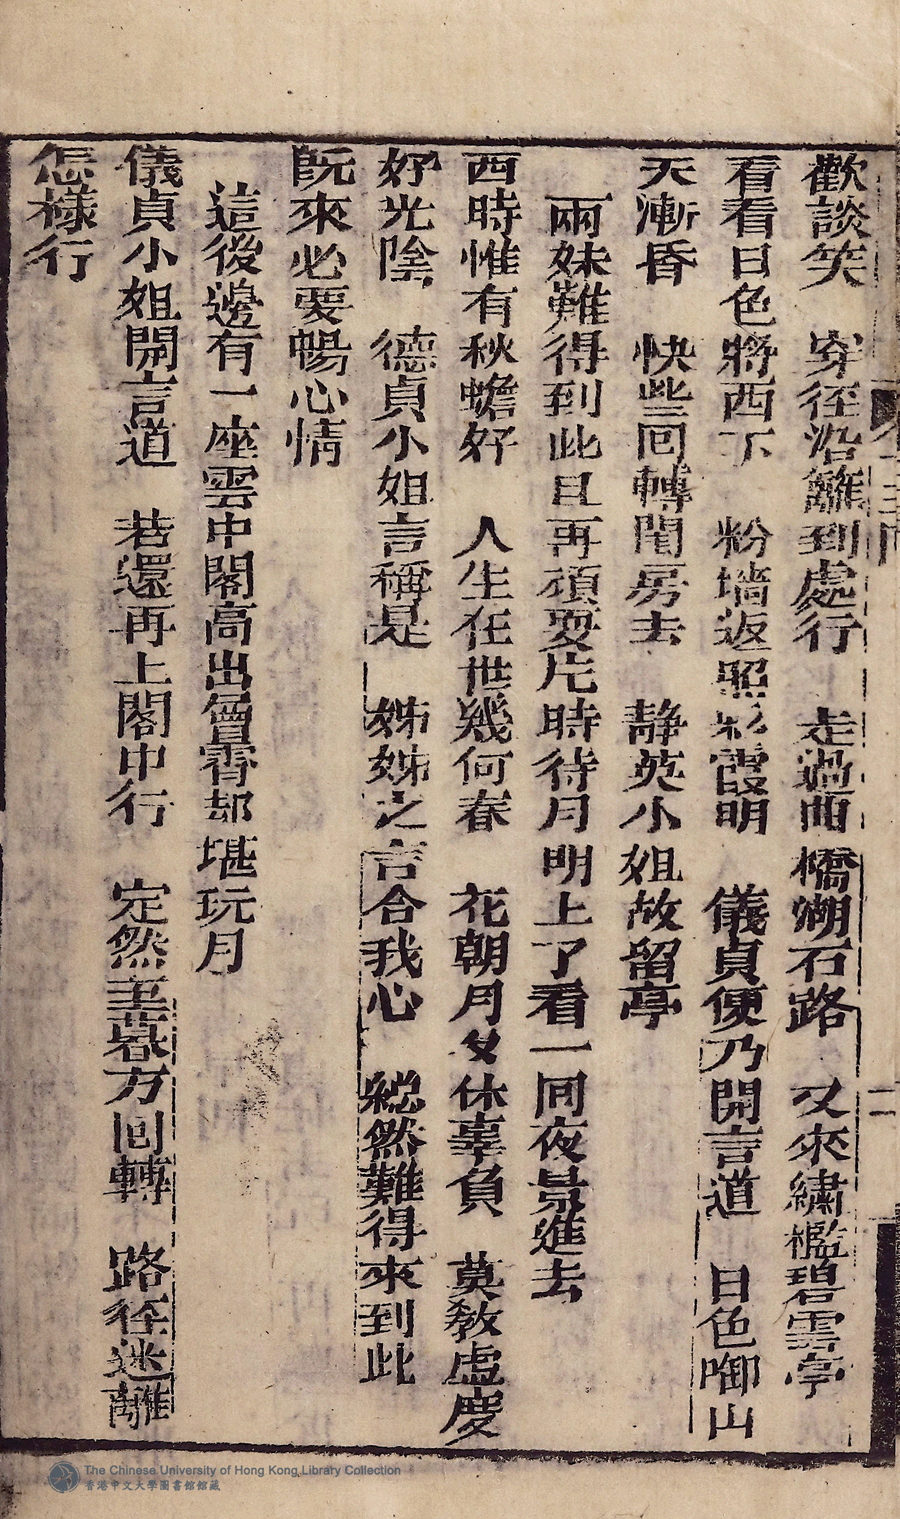 歡談笑　穿徑沿籬到處行　走過曲橋湖石路　又來繡檻碧雲亭
看看日色將西下　粉墻返照彩霞明　儀貞便乃開言道　日色啣山
天漸昏　快些回轉閨房去　静英小姐故留亭
兩妹難得到此且再頑耍片時待月明上了看一回夜景進去
西時惟有秋蟾好　人生在世幾何春　花朝月夕休辜負　莫教虛度
好光陰　德貞小姐言稱是　姊姊之言合我心　縂然難得來到此
既來必要暢心情
這後邊有一座雲中閣高出層霄却堪玩月
儀貞小姐開言道　若還再上閣中行　定然至暮方回轉　路徑迷離
怎樣行
二
The Chinese University of Hong Kong Library Collection
香港中文大學圖書館館藏